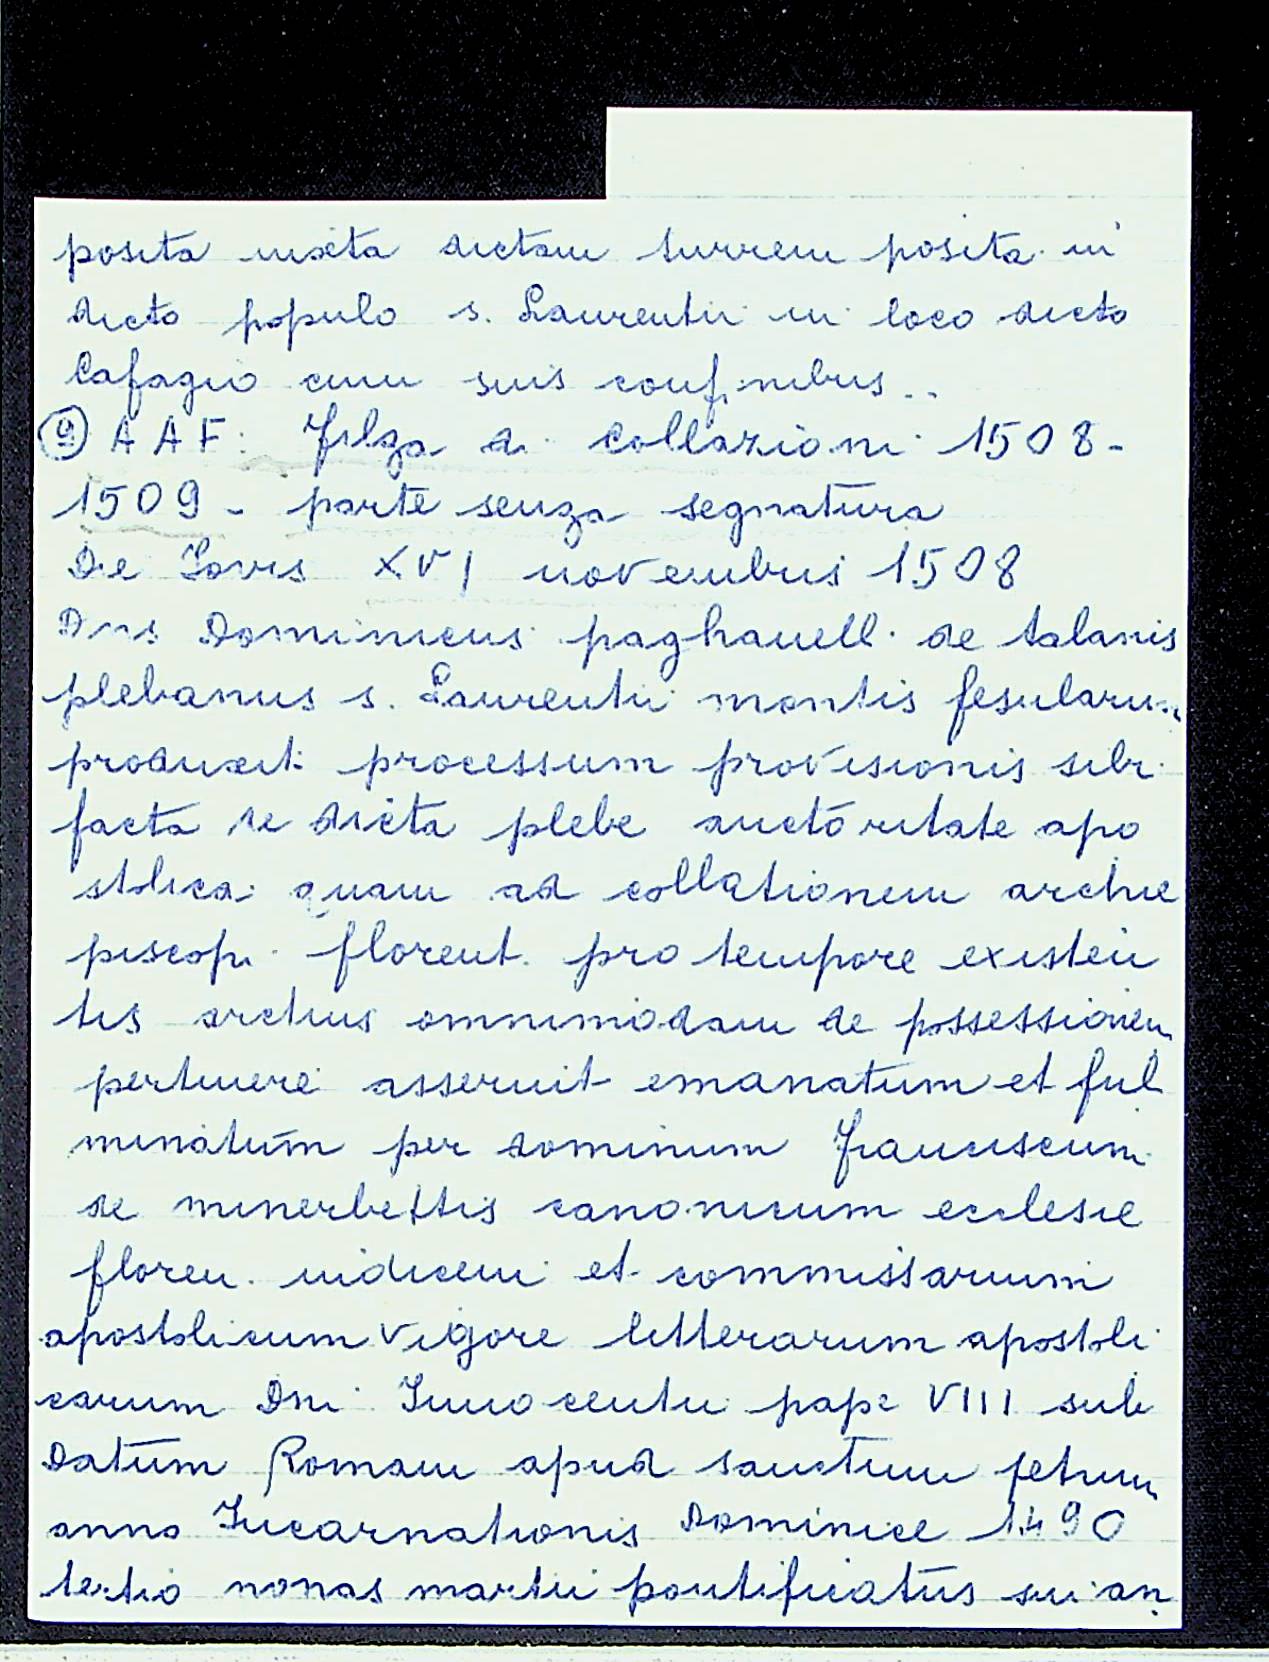 posita iuxta dictam turrem posita in
dicto populo s. Laurentii in loco dicto
Cafagio cum suis confinibus..
⑨ A A F: Filza di Collazioni 1508-
1509 - parte senza segnatura
Die Jovis XVI novembris 1508
Dns Dominicus paghanell. de talanis
plebanus s. Laurentii montis fesularum
produxit processum provisionis sibi
facta de dicta plebe auctoritate apo
stolica quam ad collationem archie
piscopi florent. pro tempore existen
tis omnimodam de possessionem
pertinere asseruit emanatum et ful
minatum per dominum Franciscum
de minerbettis canonicum ecclesie
floren. iudicem et commissarium
apostolicum vigore litterarum apostoli
carum Dni Innocentii pape VIII sub
Datum Romam apud sanctum petrum
anno Incarnationis Dominice 1490
tertio nonas martii pontificatus sui an